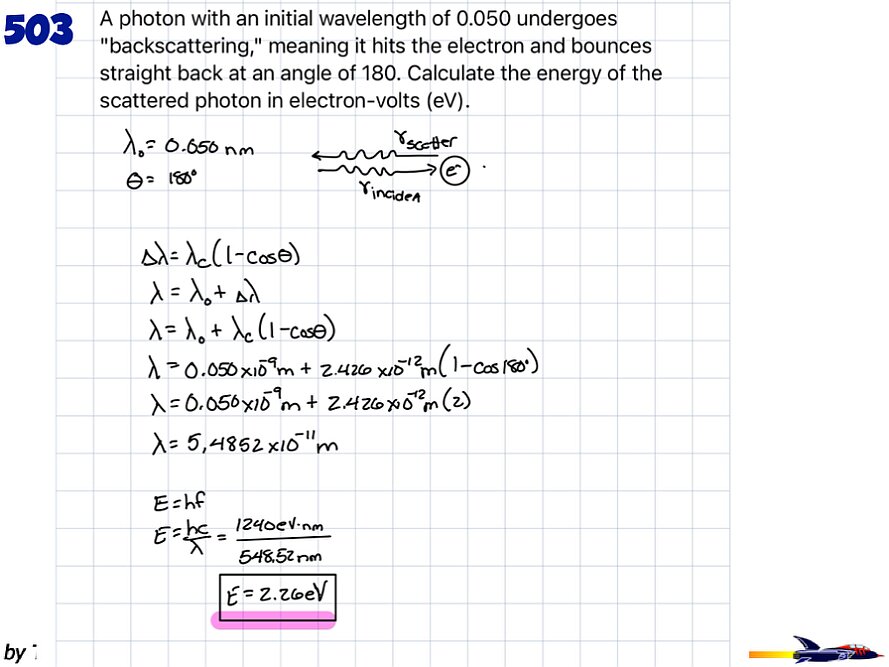 503
A photon with an initial wavelength of 0.050 undergoes
"backscattering," meaning it hits the electron and bounces
straight back at an angle of 180. Calculate the energy of the
scattered photon in electron-volts (eV).
λ₀ = 0.050 nm
θ = 180°
γscatter
e⁻
γincident
Δλ = λc(1-cosθ)
λ = λ₀ + Δλ
λ = λ₀ + λc(1-cosθ)
λ = 0.050x10⁻⁹m + 2.426x10⁻¹²m(1-cos180°)
λ = 0.050x10⁻⁹m + 2.426x10⁻¹²m(2)
λ = 5,4852x10⁻¹¹m
E = hf
E = hc/λ = 1240eV·nm/548.52nm
E = 2.26eV
by